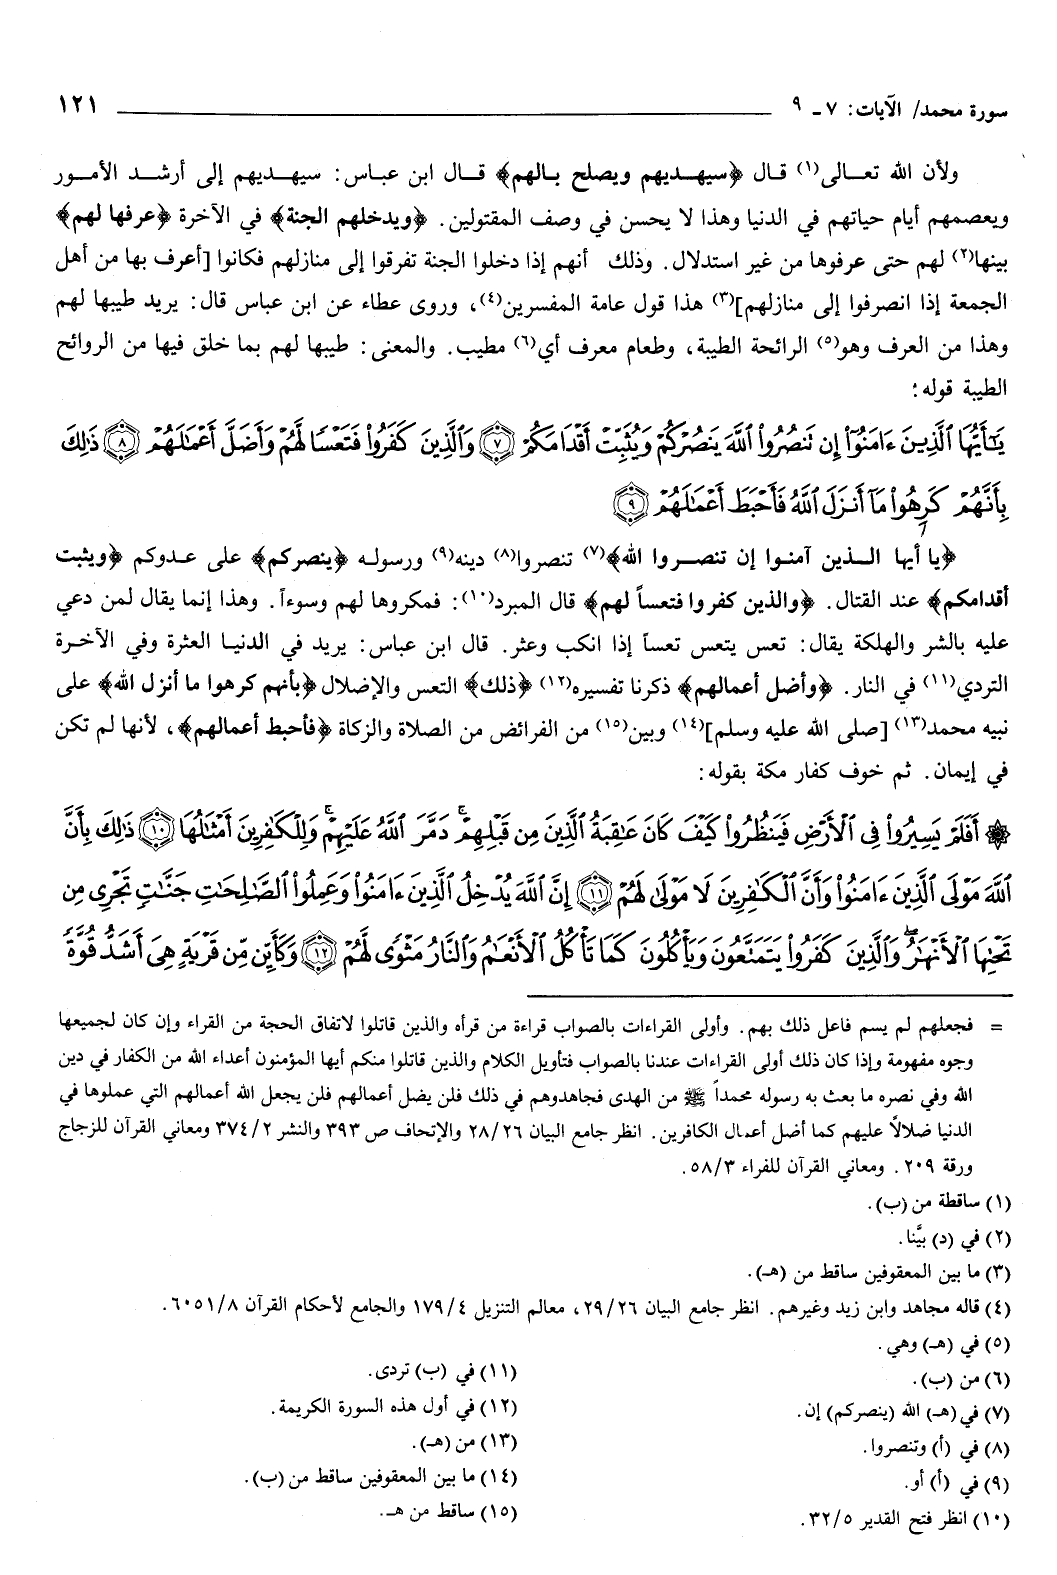 سورة محمد/ الآيات: ٧ ـ ٩ ١٢١
ولأن الله تعـالى(١) قال ﴿سيهـديهم ويصلح بـالهم﴾ قـال ابن عباس: سيهـديهم إلى أرشـد الأمـور
ويعصمهم أيام حياتهم في الدنيا وهذا لا يحسن في وصف المقتولين. ﴿ويدخلهم الجنة﴾ في الآخرة ﴿عرفها لهم﴾
بينها(٢) لهم حتى عرفوها من غير استدلال. وذلك أنهم إذا دخلوا الجنة تفرقوا إلى منازلهم فكانوا [أعرف بها من أهل
الجمعة إذا انصرفوا إلى منازلهم](٣) هذا قول عامة المفسرين(٤)، وروى عطاء عن ابن عباس قال: يريد طيبها لهم
وهذا من العرف وهو(٥) الرائحة الطيبة، وطعام معرف أي(٦) مطيب. والمعنى: طيبها لهم بما خلق فيها من الروائح
الطيبة قوله:
يَٰٓأَيُّهَا ٱلَّذِينَ ءَامَنُوٓا۟ إِن تَنصُرُوا۟ ٱللَّهَ يَنصُرْكُمْ وَيُثَبِّتْ أَقْدَامَكُمْ ﴿٧﴾ وَٱلَّذِينَ كَفَرُوا۟ فَتَعْسًا لَّهُمْ وَأَضَلَّ أَعْمَٰلَهُمْ ﴿٨﴾ ذَٰلِكَ
بِأَنَّهُمْ كَرِهُوا۟ مَآ أَنزَلَ ٱللَّهُ فَأَحْبَطَ أَعْمَٰلَهُمْ ﴿٩﴾
﴿يا أيها الـذين آمنـوا إن تنصـروا الله﴾(٧) تنصروا(٨) دينه(٩) ورسولـه ﴿ينصركم﴾ على عـدوكم ﴿ويثبت
أقدامكم﴾ عند القتال. ﴿والذين كفروا فتعساً لهم﴾ قال المبرد(١٠): فمكروها لهم وسوءاً. وهذا إنما يقال لمن دعي
عليه بالشر والهلكة يقال: تعس يتعس تعساً إذا انكب وعثر. قال ابن عباس: يريد في الدنيـا العثرة وفي الآخـرة
التردي(١١) في النار. ﴿وأضل أعمالهم﴾ ذكرنا تفسيره(١٢) ﴿ذلك﴾ التعس والإضلال ﴿بأنهم كرهوا ما أنزل الله﴾ على
نبيه محمد(١٣) [صلى الله عليه وسلم](١٤) وبين(١٥) من الفرائض من الصلاة والزكاة ﴿فأحبط أعمالهم﴾، لأنها لم تكن
في إيمان. ثم خوف كفار مكة بقوله:
۞ أَفَلَمْ يَسِيرُوا۟ فِى ٱلْأَرْضِ فَيَنظُرُوا۟ كَيْفَ كَانَ عَٰقِبَةُ ٱلَّذِينَ مِن قَبْلِهِمْ ۚ دَمَّرَ ٱللَّهُ عَلَيْهِمْ ۖ وَلِلْكَٰفِرِينَ أَمْثَٰلُهَا ﴿١٠﴾ ذَٰلِكَ بِأَنَّ
ٱللَّهَ مَوْلَى ٱلَّذِينَ ءَامَنُوا۟ وَأَنَّ ٱلْكَٰفِرِينَ لَا مَوْلَىٰ لَهُمْ ﴿١١﴾ إِنَّ ٱللَّهَ يُدْخِلُ ٱلَّذِينَ ءَامَنُوا۟ وَعَمِلُوا۟ ٱلصَّٰلِحَٰتِ جَنَّٰتٍ تَجْرِى مِن
تَحْتِهَا ٱلْأَنْهَٰرُ ۖ وَٱلَّذِينَ كَفَرُوا۟ يَتَمَتَّعُونَ وَيَأْكُلُونَ كَمَا تَأْكُلُ ٱلْأَنْعَٰمُ وَٱلنَّارُ مَثْوًى لَّهُمْ ﴿١٢﴾ وَكَأَيِّن مِّن قَرْيَةٍ هِىَ أَشَدُّ قُوَّةً
= فجعلهم لم يسم فاعل ذلك بهم. وأولى القراءات بالصواب قراءة من قرأه والذين قاتلوا لاتفاق الحجة من القراء وإن كان لجميعها
وجوه مفهومة وإذا كان ذلك أولى القراءات عندنا بالصواب فتأويل الكلام والذين قاتلوا منكم أيها المؤمنون أعداء الله من الكفار في دين
الله وفي نصره ما بعث به رسوله محمداً ﷺ من الهدى فجاهدوهم في ذلك فلن يضل أعمالهم فلن يجعل الله أعمالهم التي عملوها في
الدنيا ضلالاً عليهم كما أضل أعمال الكافرين. انظر جامع البيان ٢٨/٢٦ والإتحاف ص ٣٩٣ والنشر ٣٧٤/٢ ومعاني القرآن للزجاج
ورقة ٢٠٩. ومعاني القرآن للفراء ٥٨/٣.
(١) ساقطة من (ب).
(٢) في (د) بيَّنا.
(٣) ما بين المعقوفين ساقط من (هـ).
(٤) قاله مجاهد وابن زيد وغيرهم. انظر جامع البيان ٢٩/٢٦، معالم التنزيل ١٧٩/٤ والجامع لأحكام القرآن ٦٠٥١/٨.
(٥) في (هـ) وهي.
(٦) من (ب).
(٧) في(هـ) الله (ينصركم) إن.
(٨) في (أ) وتنصروا.
(٩) في (أ) أو.
(١٠) انظر فتح القدير ٣٢/٥.
(١١) في (ب) تردى.
(١٢) في أول هذه السورة الكريمة.
(١٣) من (هـ).
(١٤) ما بين المعقوفين ساقط من (ب).
(١٥) ساقط من هـ.